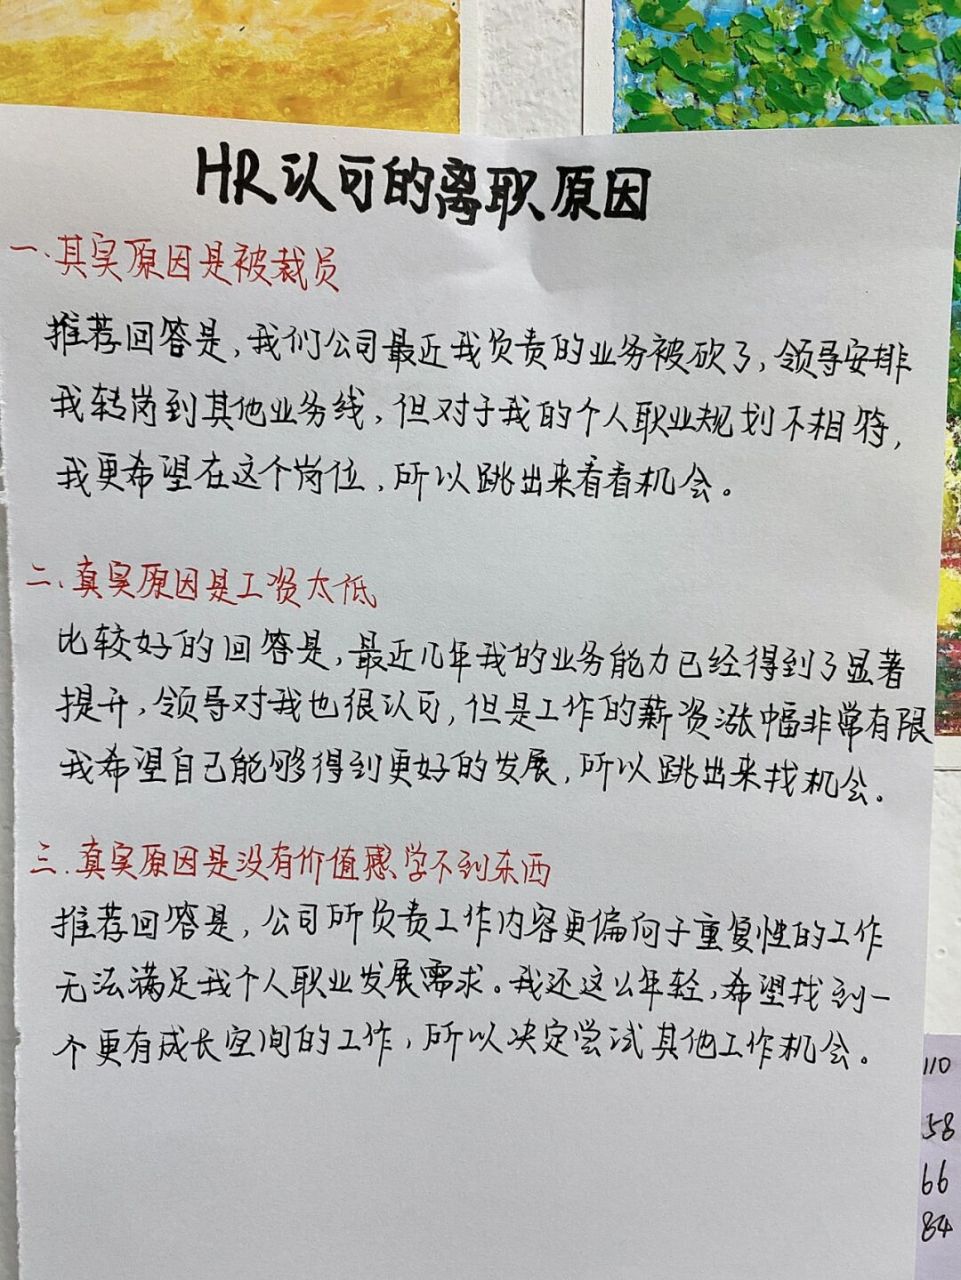 HR认可的离职原因
一.其实原因是被裁员
推荐回答是,我们公司最近我负责的业务被砍了,领导安排
我转岗到其他业务线,但对于我的个人职业规划不相符,
我更希望在这个岗位,所以跳出来看看机会。
二.真实原因是工资太低
比较好的回答是,最近几年我的业务能力已经得到了显著
提升,领导对我也很认可,但是工作的薪资涨幅非常有限
我希望自己能够得到更好的发展,所以跳出来找机会。
三.真实原因是没有价值感学不到东西
推荐回答是,公司所负责工作内容更偏向于重复性的工作
无法满足我个人职业发展需求。我还这么年轻,希望找到一
个更有成长空间的工作,所以决定尝试其他工作机会。
110
58
66
84